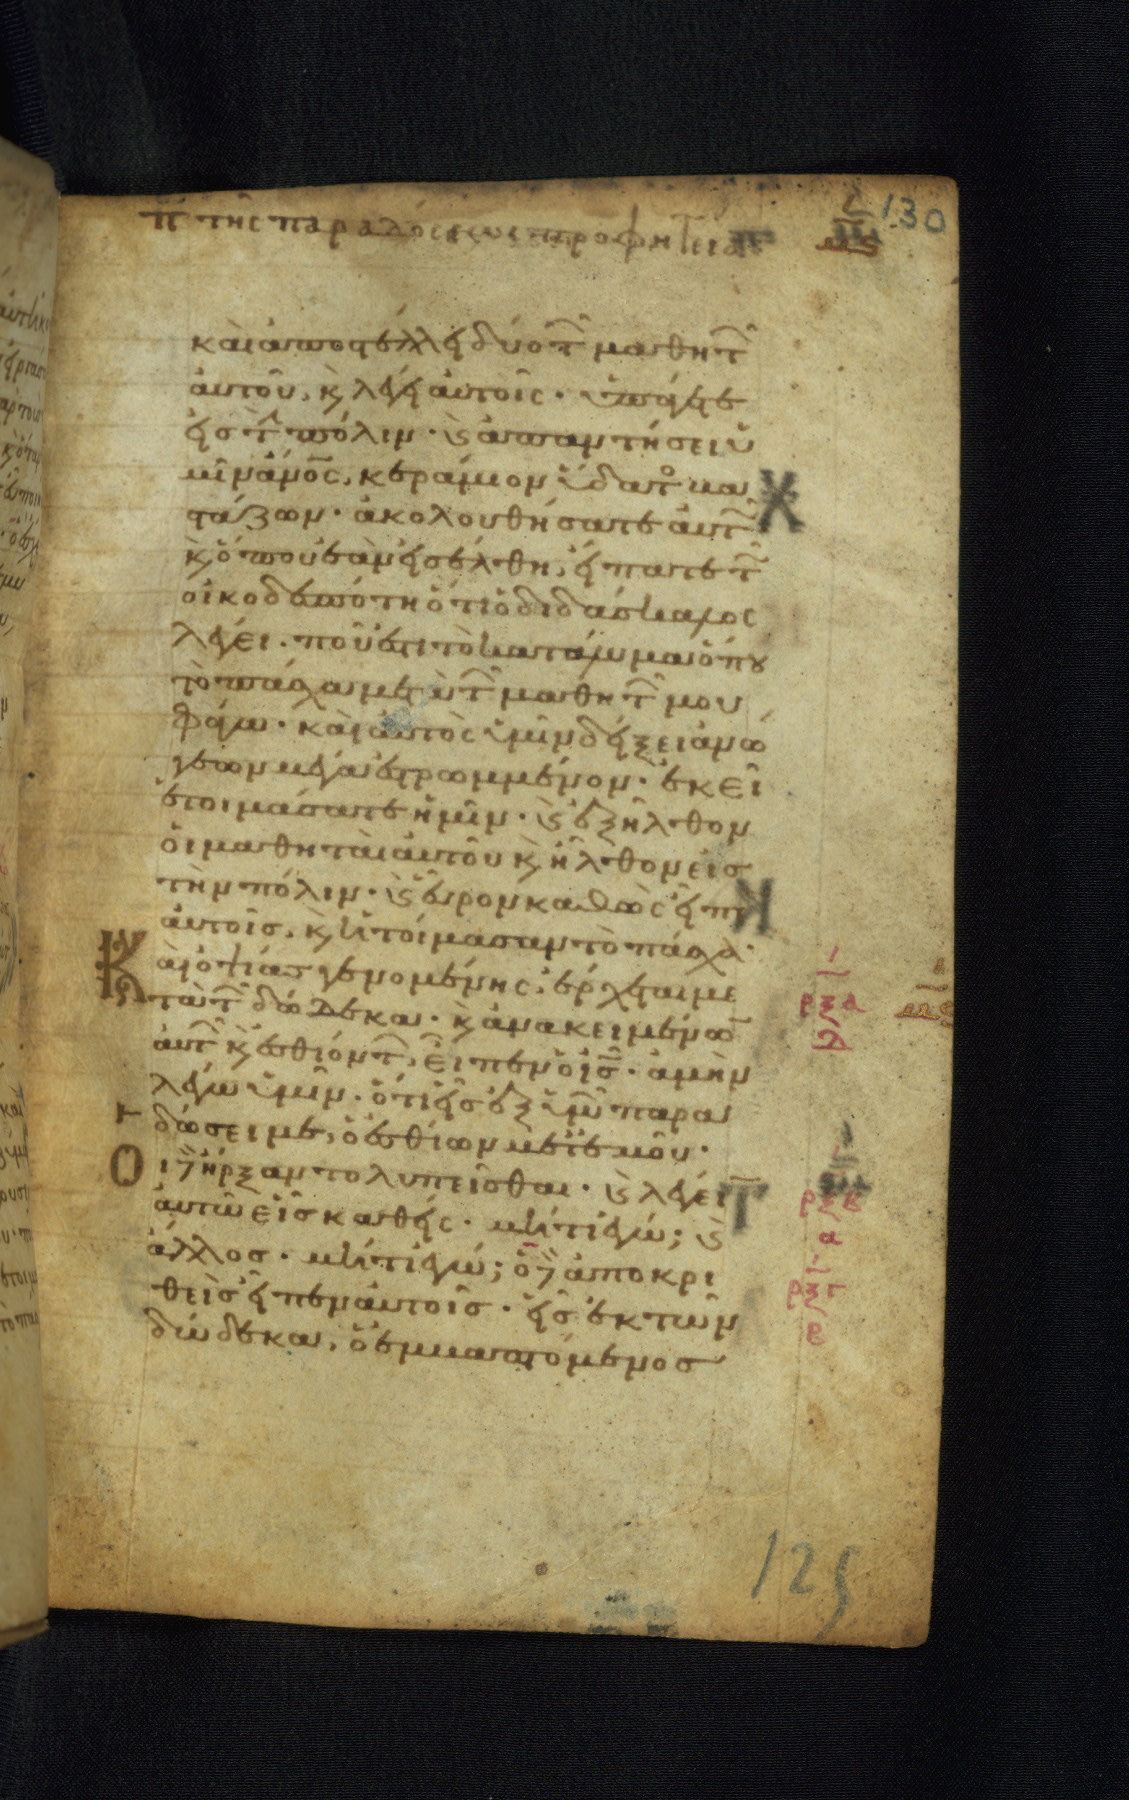 π της παραδόσεως προφητεία
130
μϛ
καὶ ἀποστέλλει δύο τῶ μαθητῶ
ἀυτοῦ, κ λέγει ἀυτοῖς · ὑπάγετε
εἰς τὴ πόλιν · κ ἀπαντήσει ὑ
μῖν ἄν̅ο̅ς, κεράμιον ὕδατο βα
στάζων · ἀκολουθήσατε ἀυτῶ
κ ὅπου ἐὰν εἰσέλθη, εἴπατε τῶ
οἰκοδεσπότη ὅτι ὁ διδάσκαλος
λέγει · ποῦ ἐστι τὸ κατάλυμα ὅπου
τὸ πάσχα μετὰ τῶ μαθητῶ μου
φάγω · καὶ ἀυτὸς ὑμῖν δείξει ἀνώ
γεων μέγα ἐστρωμμένον · ἐκεῖ
ἑτοιμάσατε ἡμῖν · κ ἐξῆλθον
ὁι μαθηταὶ ἀυτοῦ κ ἦλθον εἰς
τὴν πόλιν · κ εὗρον καθὼς εἶπεν
ἀυτοῖς, κ ἡτοίμασαν τὸ πάσχα ·
Καὶ ὀψίας γενομένης, ἔρχεται με
τὰ τῶ δώδεκα · κ ἀνακειμένω
ἀυτῶ κ ἐσθιόντω, εἶπεν ὁ ι̅ς̅ · ἀμὴν
λέγω ὑμῖν · ὅτι εἷς ἐξ ὑμῶ παρα
δώσει με, ὁ ἐσθίων μετ ἐμοῦ ·
Οἱ δὲ ἤρξαντο λυπεῖσθαι · κ λέγει
ἀυτῶ εἷς καθεῖς · μήτι ἐγώ; κ
ἄλλος · μήτι ἐγώ; ὁ δὲ ἀποκρι
θεὶς εἶπεν ἀυτοῖς · εἷς ἐκ τῶν
δώδεκα, ὁ ἐμβαπτόμενος
ρξα
ρξβ
α
ρξγ
β
125